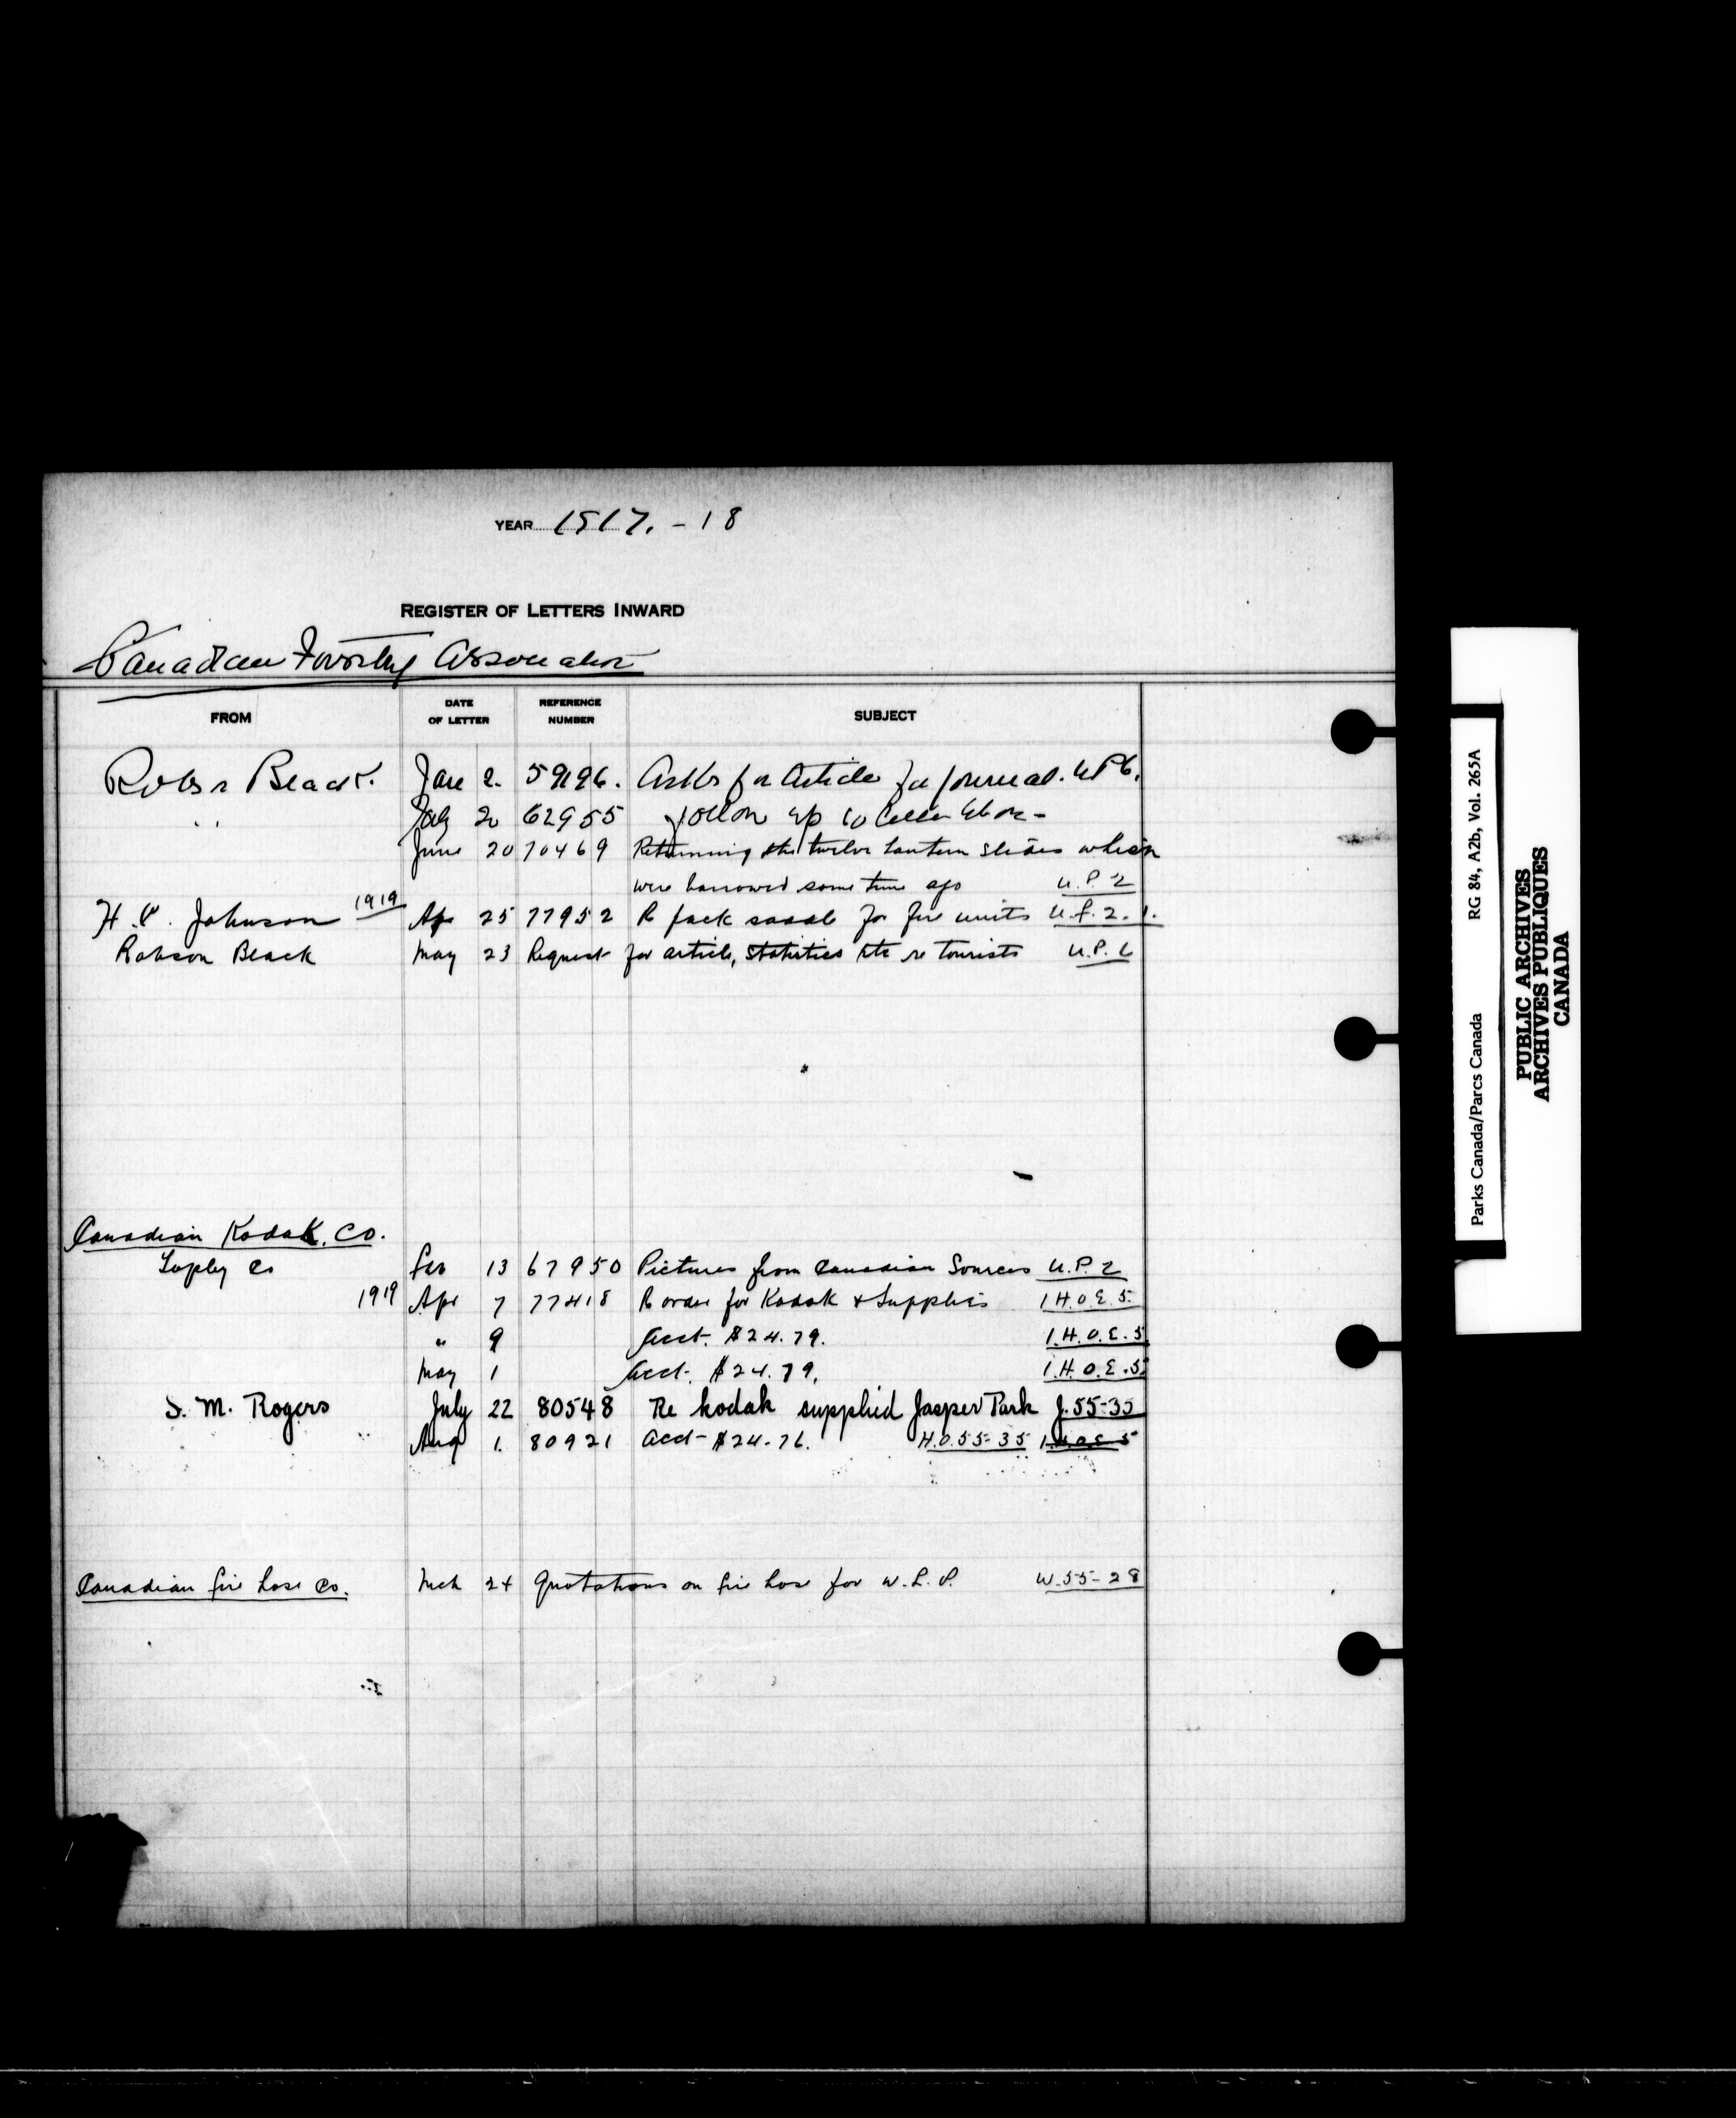 YEAR 1917. - 18
REGISTER OF LETTERS INWARD
Canadian Forestry Association
FROM DATE OF LETTER REFERENCE NUMBER SUBJECT
Robsn Black. Jan 2. 59196. Asks for Article for journal. U P 6.
" 20 62955 follow up to letter above -
June 20 70469 Returning the twelve lantern slides which
were borrowed some time ago U.P. 2
1919
H. Johnson Ap 25 77952 R pack saddle for fire units U.P. 2. 1.
Robson Black May 23 Request for article, statistics etc re tourists U.P. 6
Canadian Kodak. Co.
Topley Co Feb 13 67950 Pictures from Canadian Sources U.P. 2
1919 Apr 7 77418 R order for Kodak & Supplies 1 H.O.E. 5.
" 9 Acct. $24.79. 1.H.O.E.5
May 1 Acct. $24.79. 1.H.O.E.5
S. M. Rogers July 22 80548 Re kodak supplied Jasper Park J.55-35
Aug 1. 80921 Acct - $24.76. H.O.55-35 1.H.O.E 5
Canadian fire hose Co. Mch 24 Quotations on fire hose for W.L.P. W.55-28
Parks Canada/Parcs Canada RG 84, A2b, Vol. 265A
PUBLIC ARCHIVES
ARCHIVES PUBLIQUES
CANADA